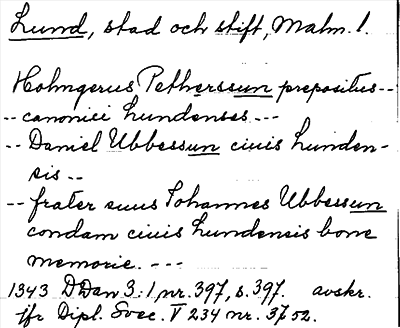 Lund, stad och stift, Malm. l.
Holmgerus Petherssun prepositus --
-- canonici lundenses ---
-- Daniel Ubbessun ciuis lunden-
sis --
-- frater suus Johannes Ubbessun
condam ciuis lundensis bone
memorie. ---
1343 DDan 3:1, nr. 397, s. 397. avskr.
jfr Dipl. Svec. V 234 nr. 3752.